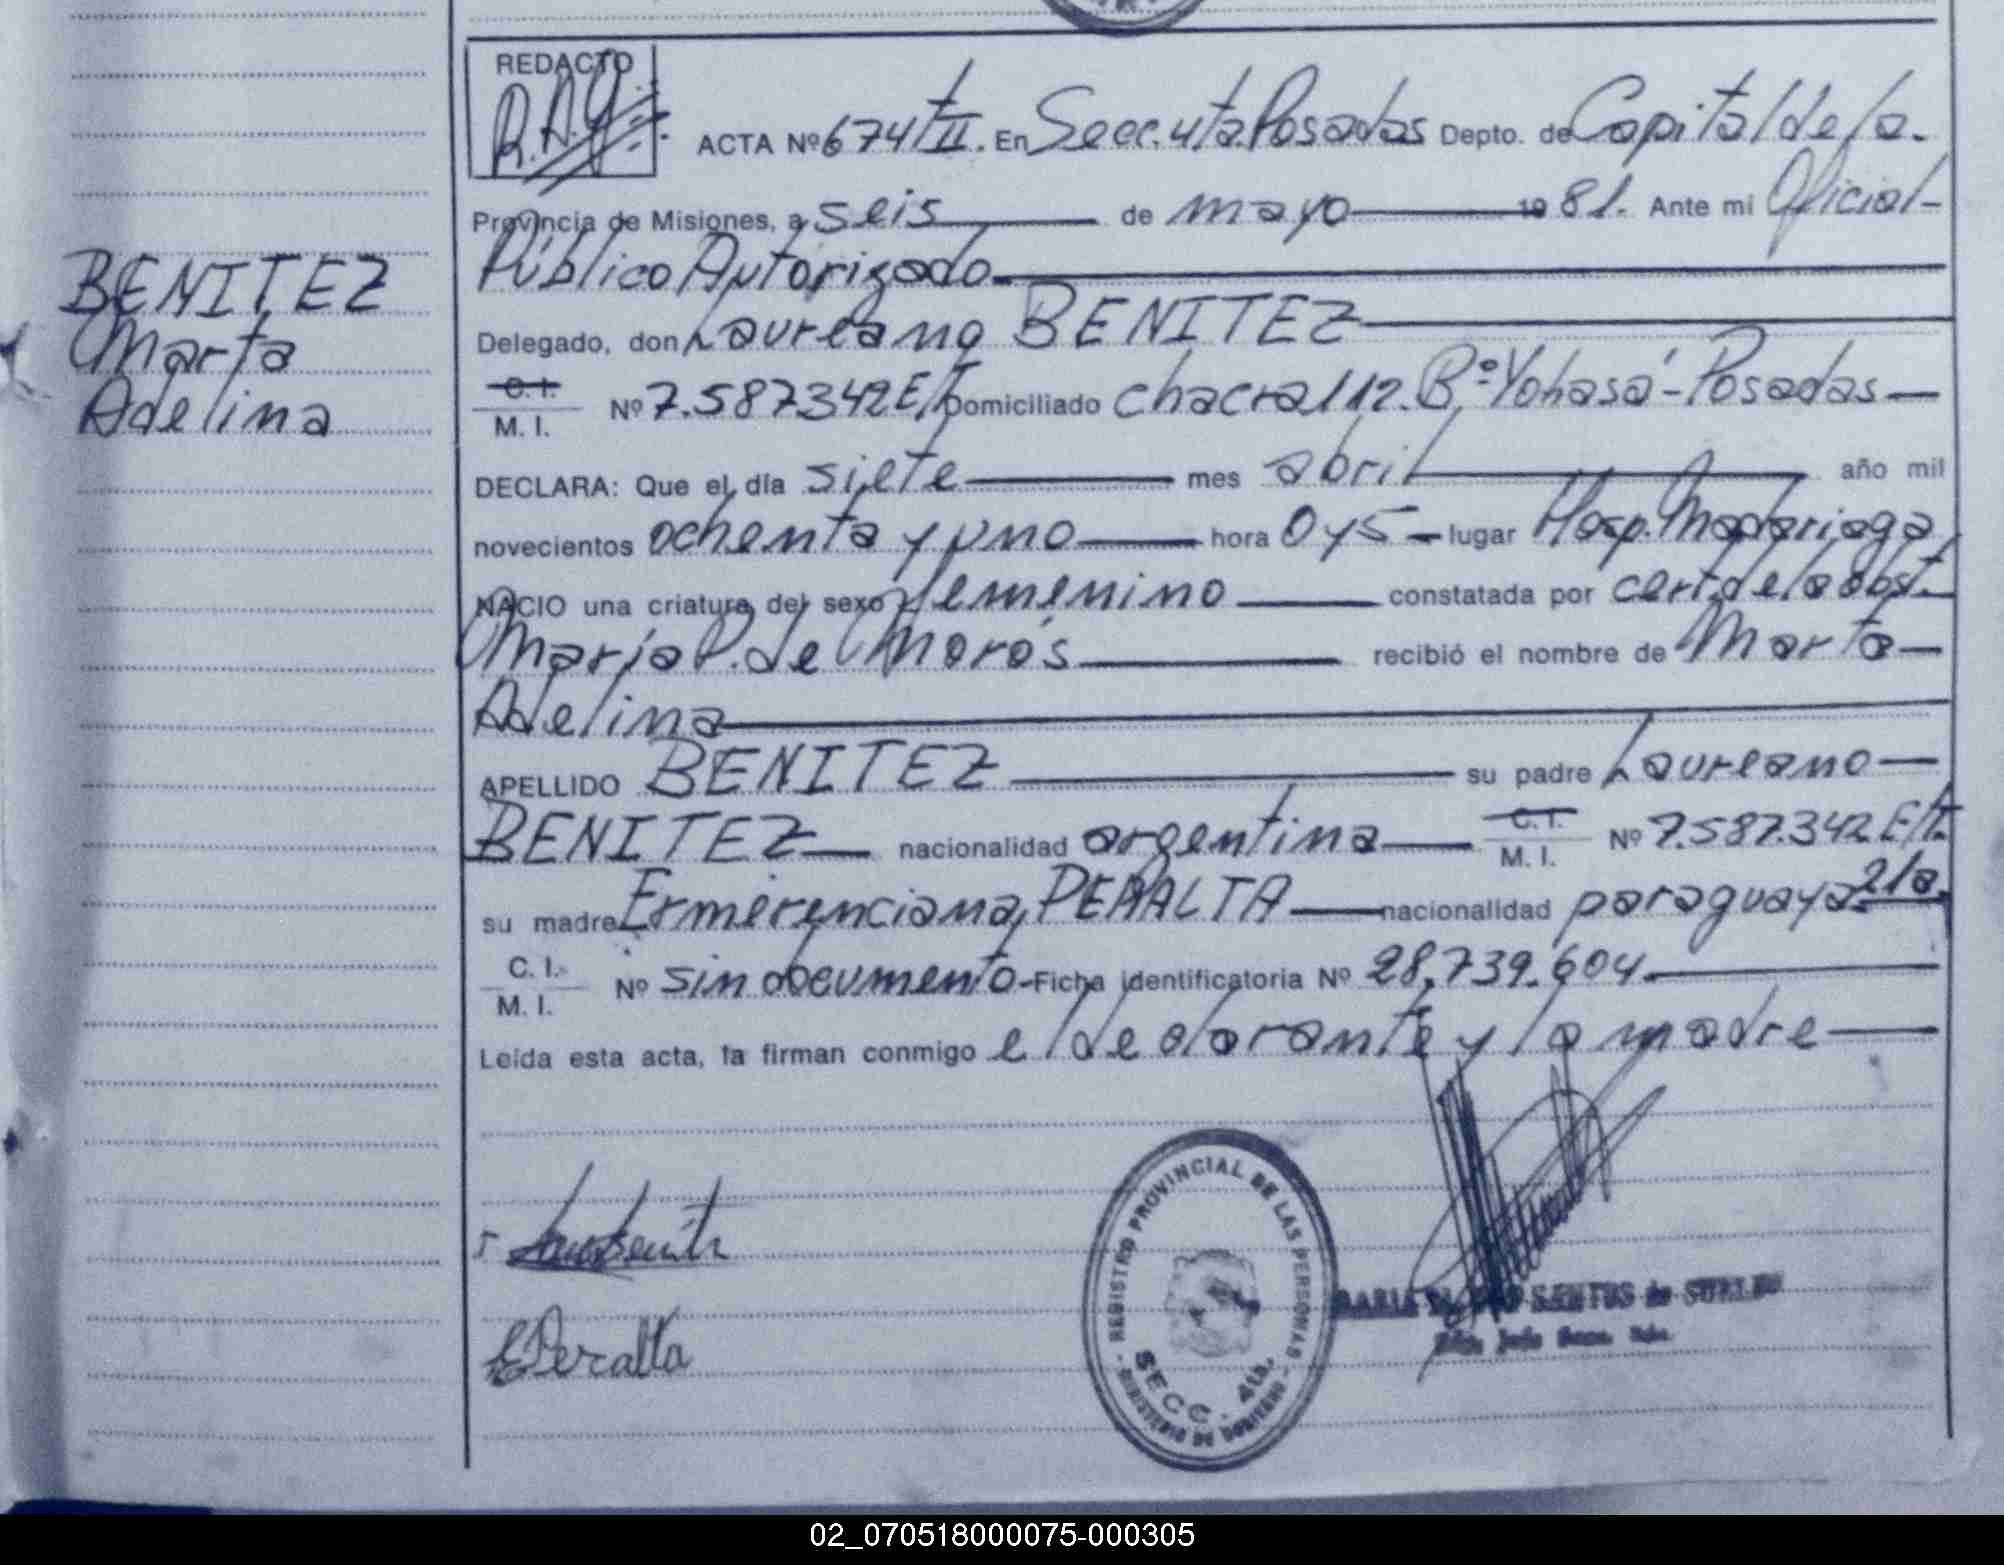 REDACTO
R.A.G.
ACTA Nº 674 t II. En Secc. 4ta. Posadas Depto. de Capital de la
Provincia de Misiones, a seis de mayo 1981. Ante mi Oficial
Público Autorizado
BENITEZ
Marta
Adelina
Delegado, don Laureano BENITEZ
C. I.
M. I. Nº 7.587.342 E/t Domiciliado chacra 112. Bº: Yohasá - Posadas
DECLARA: Que el día siete mes abril año mil
novecientos ochenta y uno hora 0 y 5 lugar Hosp. Madariaga
NACIO una criatura del sexo femenino constatada por cert. de la obst.
María P. de Morós recibió el nombre de Marta
Adelina
APELLIDO BENITEZ su padre Laureano
BENITEZ nacionalidad argentina C. I.
M. I. Nº 7.587.342 E/t.
su madre Ermerenciana PERALTA nacionalidad paraguaya 21a.
C. I.
M. I. Nº sin documento - Ficha identificatoria Nº 28.739.604
Leída esta acta, la firman conmigo el declarante y la madre
E Peralta
REGISTRO PROVINCIAL DE LAS PERSONAS
SECC. 4ta.
MINISTERIO DE GOBIERNO
SANTOS de
02_070518000075-000305